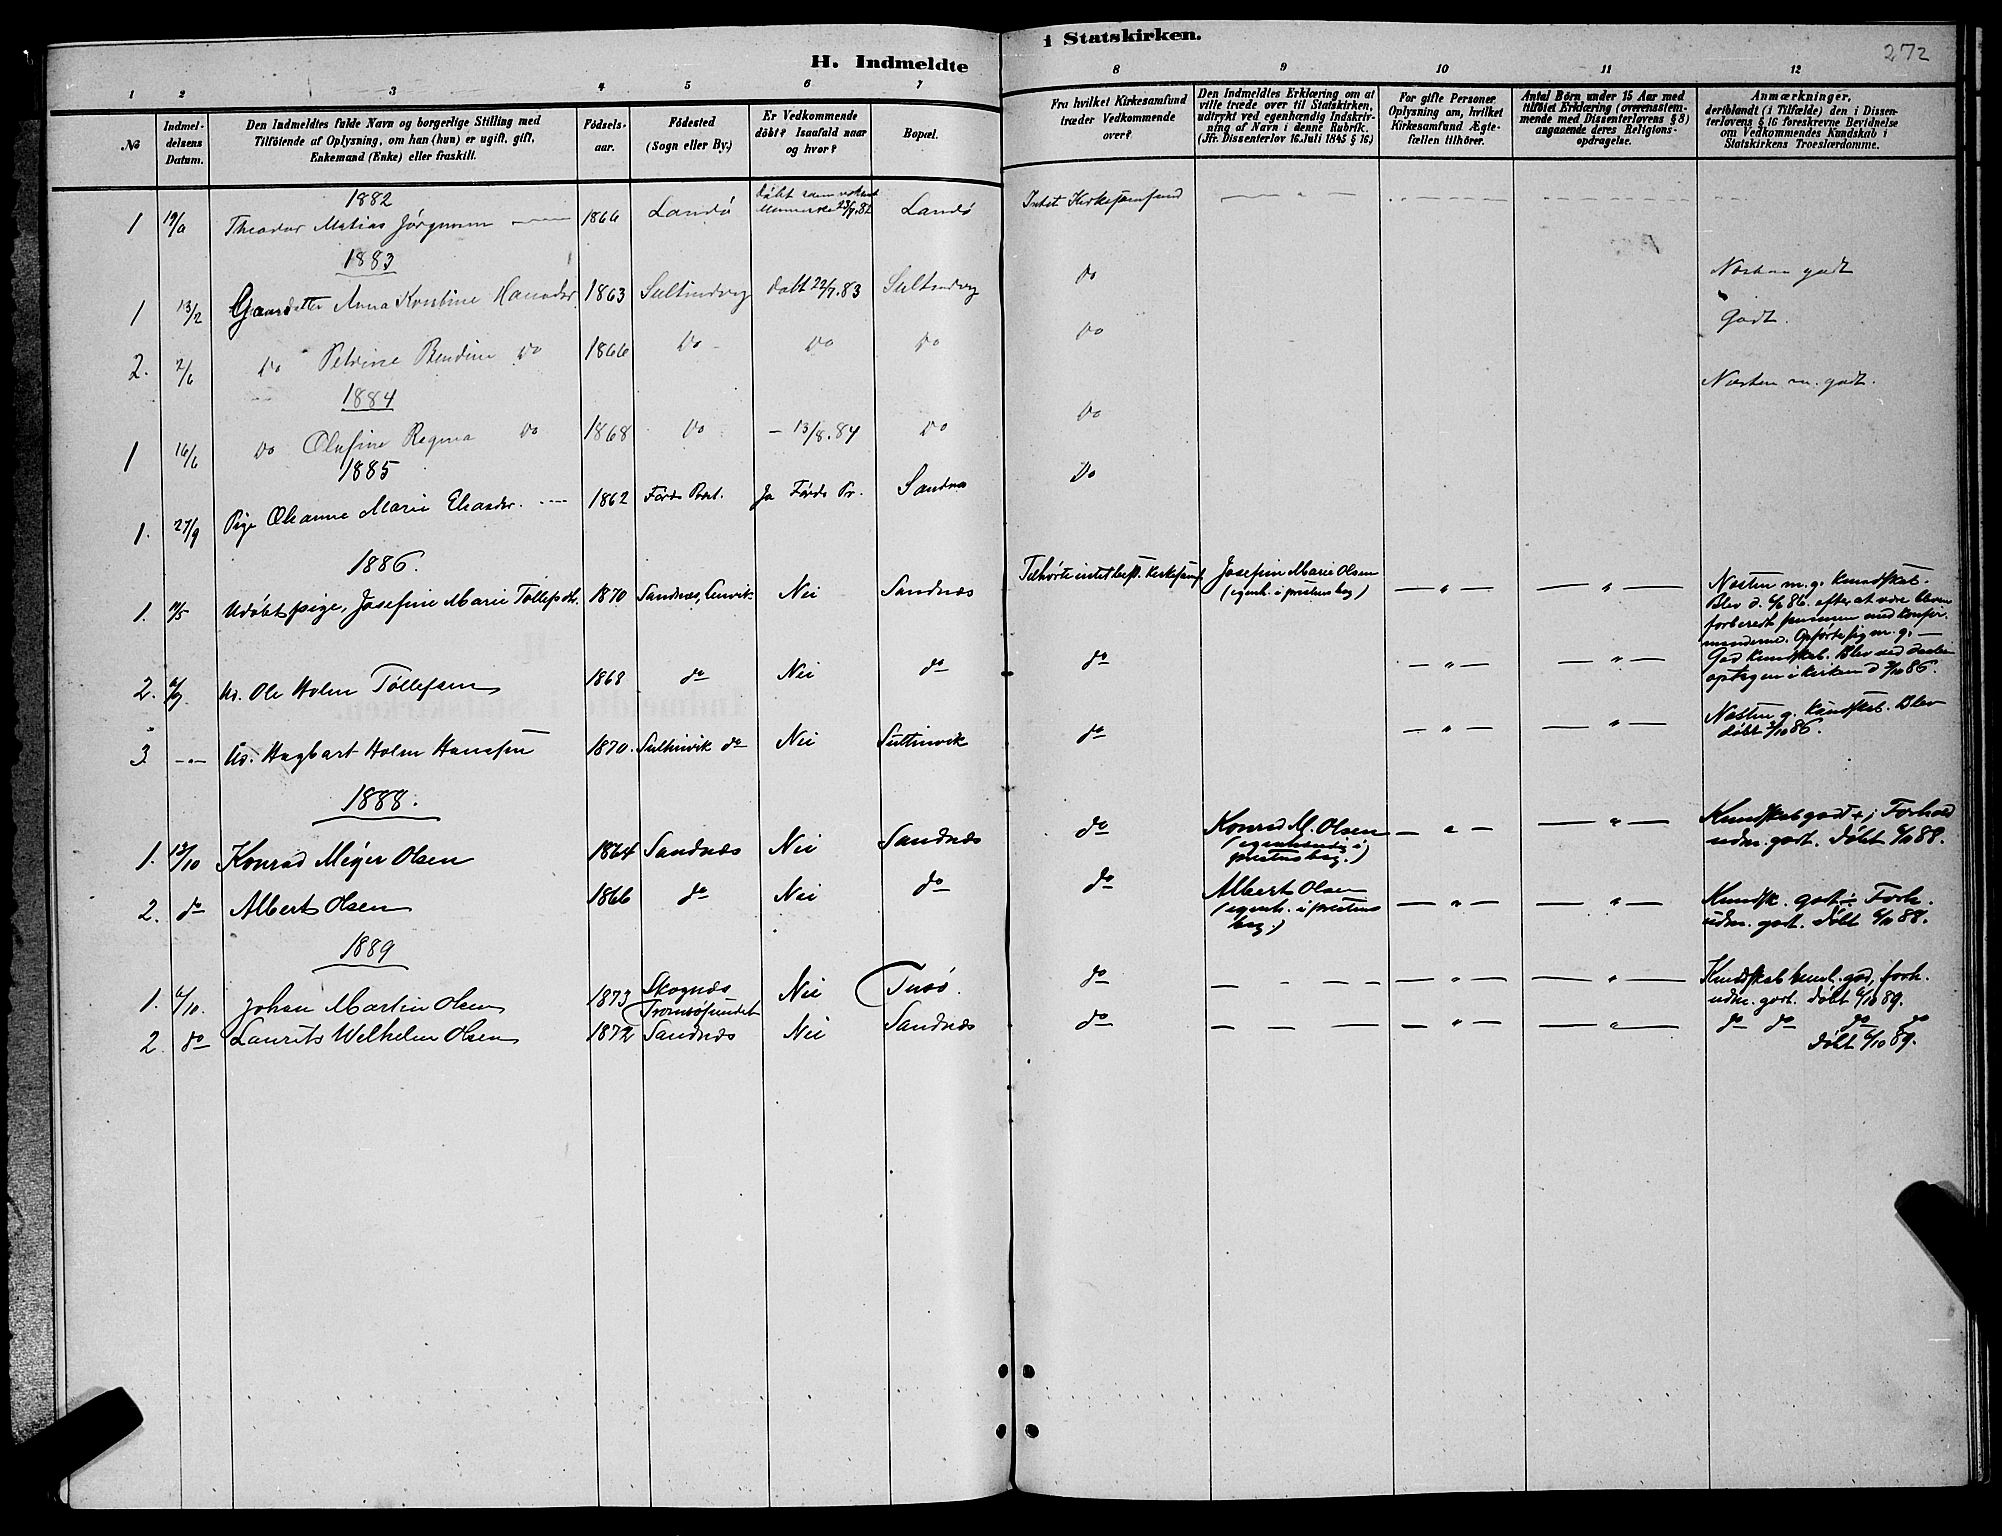 H. Indmeldte
i Statskirken.
272
1 2 3 4 5 6 7 8 9 10 11 12
No
Indmel-
delsens
Datum.
Den Indmeldtes fulde Navn og borgerlige Stilling med
Tilföiende af Oplysning, om han (hun) er ugift, gift,
Enkemand (Enke) eller fraskilt.
Födsels-
aar.
Födested
(Sogn eller By.)
Er Vedkommende
döbt? Isaafald naar
og hvor?
Bopæl.
Fra hvilket Kirkesamfund
træder Vedkommende
over?
Den Indmeldtes Erklæring om at
ville træde over til Statskirken,
udtrykt ved egenhændig Indskriv-
ning af Navn i denne Rubrik.
(Jfr. Dissenterlov 16. Juli 1845 § 16.)
For gifte Personer
Oplysning om, hvilket
Kirkesamfund Ægte-
fællen tilhörer.
Antal Börn under 15 Aar med
tilföiet Erklæring (overensstem-
mende med Dissenterlovens § 8)
angaaende deres Religions-
opdragelse.
Anmærkninger,
deriblandt (i Tilfælde) den i Dissen-
terlovens § 16 foreskrevne Bevidnelse
om Vedkommendes Kundskab i
Statskirkens Troeslærdomme.
1882
1 19/9 Theodor Matias Jörgensen 1866 Landö Döbt 23/9.82 Landö Intet Kirkesamfund
1883
1 13/2 Gaardetter Anna Kristine Hansdr 1863 Sultindvig döbt 22/7.83 Sultindvig Do Næsten godt
2. 2/6 Do Petrine Bendine Do 1866 Do Do Do Do Godt.
1884
1 16/6 Do Olufine Regina Do 1868 Do - 13/8.84 Do Do Næsten m. godt.
1885
1. 27/9 Pige Ohanna Marie Eliasdr. 1862 Förde Præst. Ja Förde Pr. Sandnæs Do
1886.
1. Udöbt pige, Josefine Marie Tollefsdtr. 1870 Sandnæs, Lenvik Nei Sandnæs Tilhörte intet best. Kirkesamf. Josefine Marie Olsen
(egenh. i prestens bog) — " — — " — Næsten m. g. kundskab.
Blev d. 86. efter at være bleven
forberedt sammen med konfir-
manderne. Opförte sig m. g. —
2. Ud. Ole Holm Tollefsen 1868 do Nei do do — " — — " — God kundskab. Blev ved daaben
optagen i kirken d 3/10 86.
3. -"- Ud. Hagbart Holm Hansen 1870. Sultinvik do Nei Sultinvik do — " — — " — Næsten g. kundskab. Blev
döbt 3/10 86.
1888.
1. Konrad Meyer Olsen 1864 Sandnæs Nei Sandnæs do Konrad M. Olsen
(egenhændig i
prestens bog.) — " — — " — Kundskab godt +, Forhold
udm. godt. Döbt 88.
2. do Albert Olsen 1866 do Nei do do Albert Olsen
(egenh. i prestens
bog.) — " — — " — Kundsk. godt ÷ Forh.
udm. godt. Döbt 88.
1889
1. 6/10. Johan Martin Olsen 1873 Skognæs
Tromsösundet Nei Tusö. do — - — — " — — " — Kundskab god, forh.
udm. godt. döbt 6/10 89.
2. do Laurits Welhelm Olsen 1872 Sandnæs Nei Sandnæs do — - — — " — — " — do do do do
döbt 6/10 89.